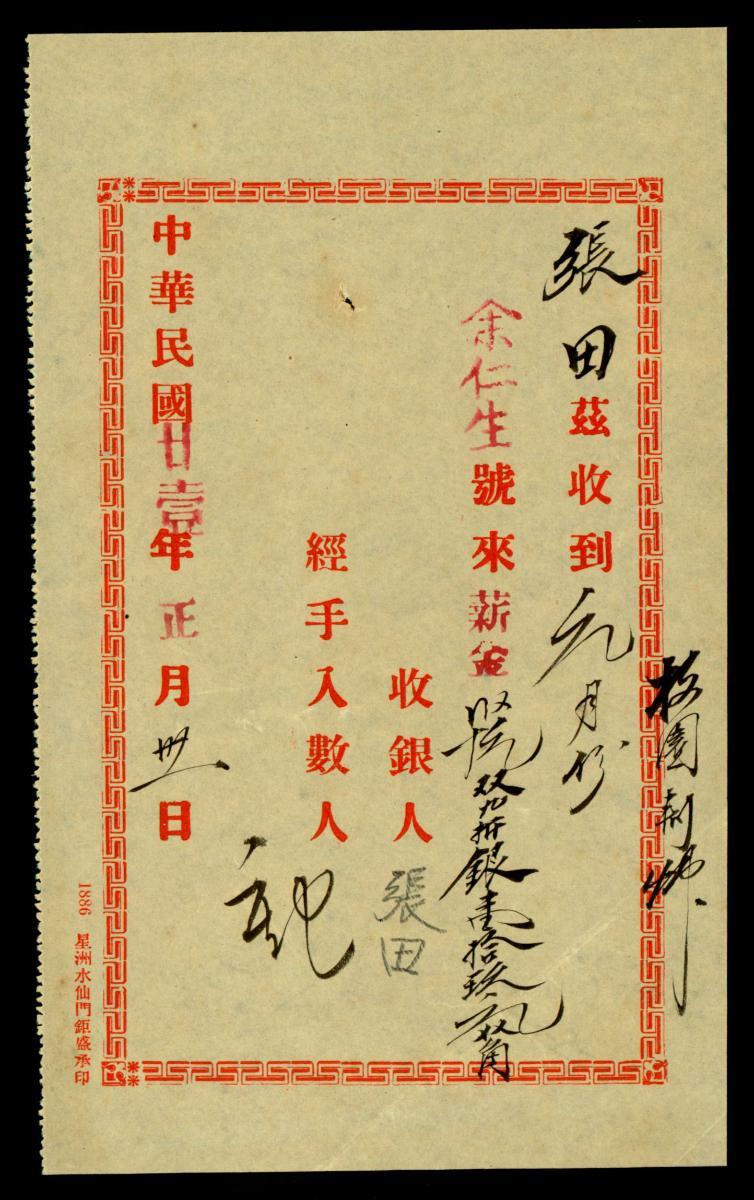 張田茲收到元月份
余仁生號來薪金双九折銀壹拾玖元双角
收銀人張田
經手入數人
中華民國廿壹年正月卅一日
1886 星洲水仙門鉅盛承印